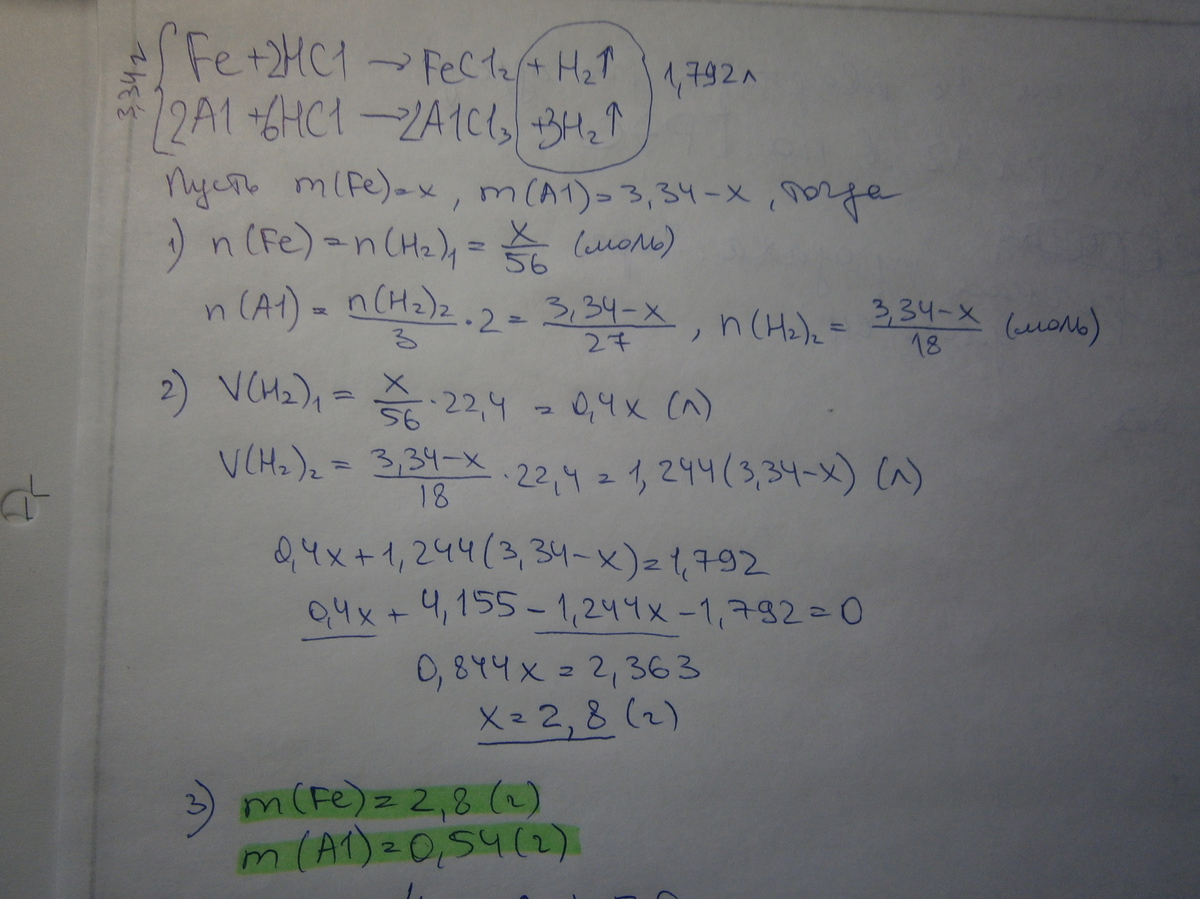 3,34г
Fe + 2HCl → FeCl₂ + H₂↑ 1,792л
2Al + 6HCl → 2AlCl₃ + 3H₂↑
Пусть m(Fe)=x, m(Al)=3,34-x, тогда
1) n(Fe) = n(H₂)₁ = x/56 (моль)
n(Al) = n(H₂)₂/3 · 2 = 3,34-x/27, n(H₂)₂ = 3,34-x/18 (моль)
2) V(H₂)₁ = x/56 · 22,4 = 0,4x (л)
V(H₂)₂ = 3,34-x/18 · 22,4 = 1,244(3,34-x) (л)
0,4x + 1,244(3,34-x) = 1,792
0,4x + 4,155 - 1,244x - 1,792 = 0
0,844x = 2,363
x = 2,8 (г)
3) m(Fe) = 2,8 (г)
m(Al) = 0,54 (г)